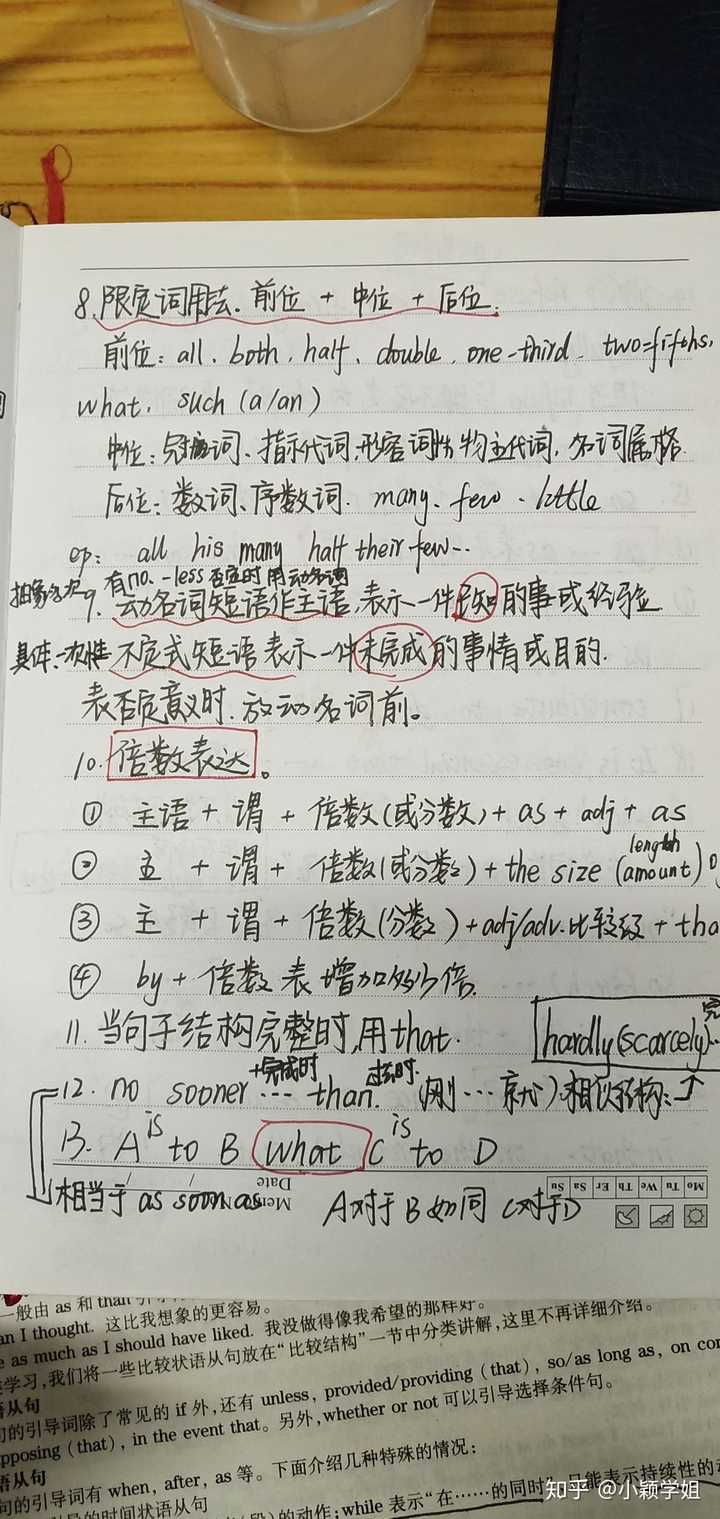 8.限定词用法. 前位 + 中位 + 后位.
前位: all. both. half. double. one-third. two-fifths.
what. such (a/an)
中位: 冠词、指示代词.形容词性物主代词, 名词属格.
后位: 数词、序数词. many. few. little
eg: all his many half their few...
抽象多次 有no. -less否定时用动名词
9. 动名词短语作主语,表示一件已知的事或经验
具体一次性 不定式短语 表示一件未完成的事情或目的.
表否定意义时.放动名词前。
10. 倍数表达。
① 主语 + 谓 + 倍数(或分数)+ as + adj + as
length
② 主 + 谓 + 倍数(或分数)+ the size (amount)
③ 主 + 谓 + 倍数(分数)+adj/adv.比较级 + tha
④ by + 倍数 表增加多少倍.
11. 当句子结构完整时,用that.
hardly(scarcely)..
+完成时 过去时.
12. no sooner ... than. (刚...就).相似结构:
13. A is to B what C is to D
相当于 as soon as
Memo No.
Date
Mo Tu We Th Fr Sa Su
A对于B如同C对于D
一般由 as 和 than
an I thought. 这比我想象的更容易。
e as much as I should have liked. 我没做得像我希望的那样好。
学习,我们将一些比较状语从句放在“比较结构”一节中分类讲解,这里不再详细介绍。
语从句
句的引导词除了常见的 if 外,还有 unless, provided/providing (that), so/as long as, on con
pposing (that), in the event that。另外,whether or not 可以引导选择条件句。
语从句
句的引导词有 when, after, as 等。下面介绍几种特殊的情况:
导的时间状语从句
的动作;while 表示“在……的同时”,只能表示持续性的
知乎 @小颖学姐